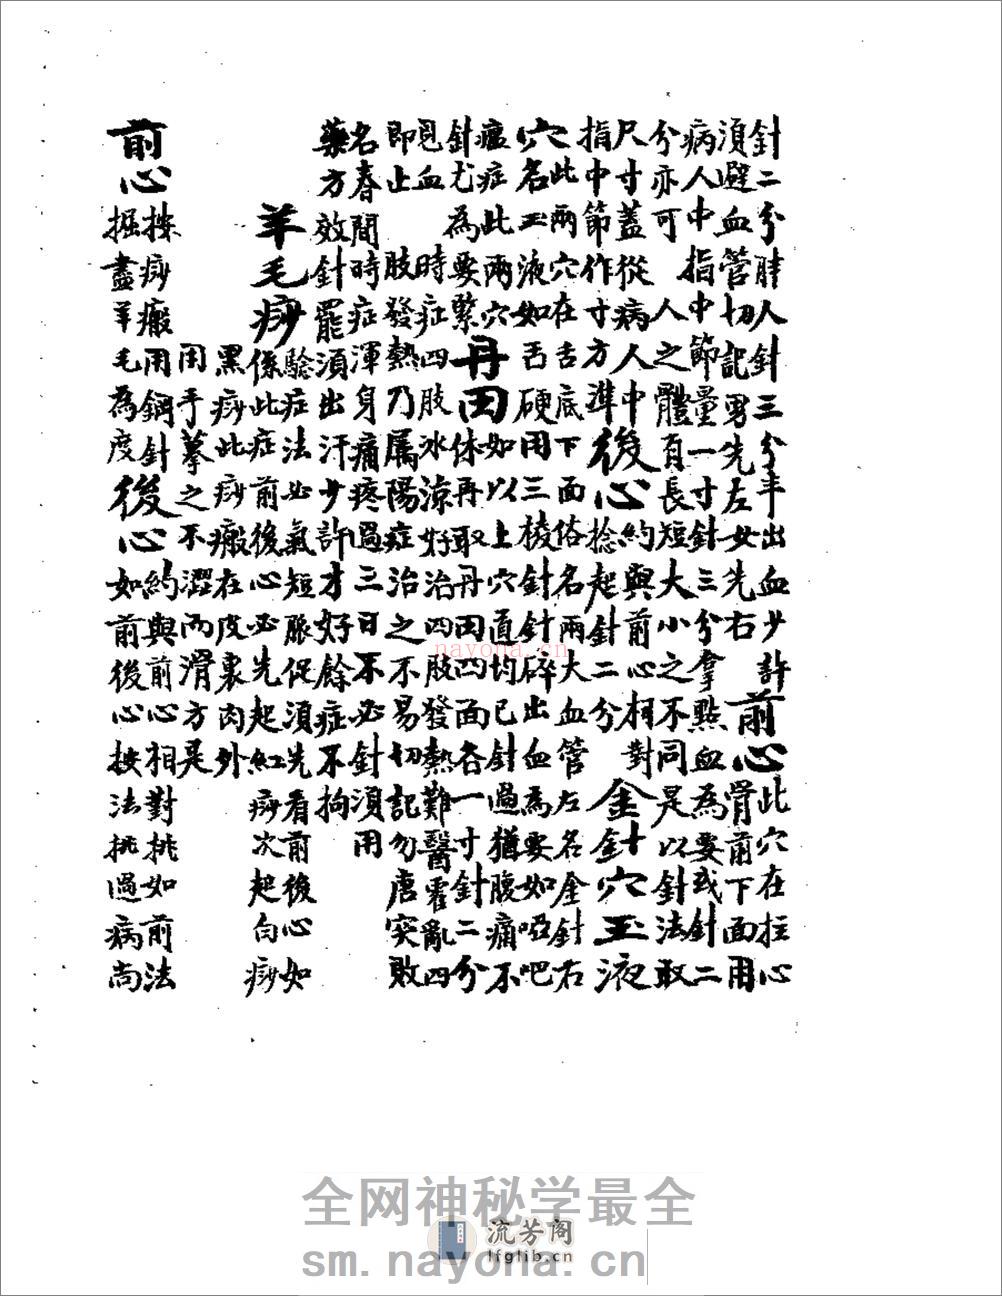 針二分胖人針三分半出血少許前心此穴在拄心
須避血管切記男先左女先右胃前下面用
病人中指中節量一寸針三分拿點血為要或針二
分亦可 人之體有長短大小之不同是以針法取
尺寸蓋從病人中
指中節作寸方準後心約與前心相對
捻起針二分金針穴玉液
穴此兩穴在舌底下面俗名兩大血管左名金針右
穴名玉液如舌硬用三棱針針碎出血為要如啞吧
瘟症此兩穴
針尤為要緊丹田如以上穴直均已針過猶腹痛不
休再取丹田四面各一寸針二分
見血 時症四肢冰涼好治四肢發熱難醫霍亂四
即止 肢發熱乃屬陽症治之不易切記勿唐突敗
名春間時症渾身痛疼過三日不必針須用
藥方效針罷須出汗少許才好餘症不拘
羊毛痧驗症法必氣短脈促須先看前後心如
係此症前後心必先起紅痧次起白痧
黑痧此痧瘢在皮裏肉外
用手摹之不澀而滑方是
前心按痧瘢用鋼針
掘盡羊毛為度後心約與前心相對挑如前法
如前後心按法挑過病尚
nayona.cn
全网神秘学最全
流芳阁
lfglib.cn
sm.nayona.cn